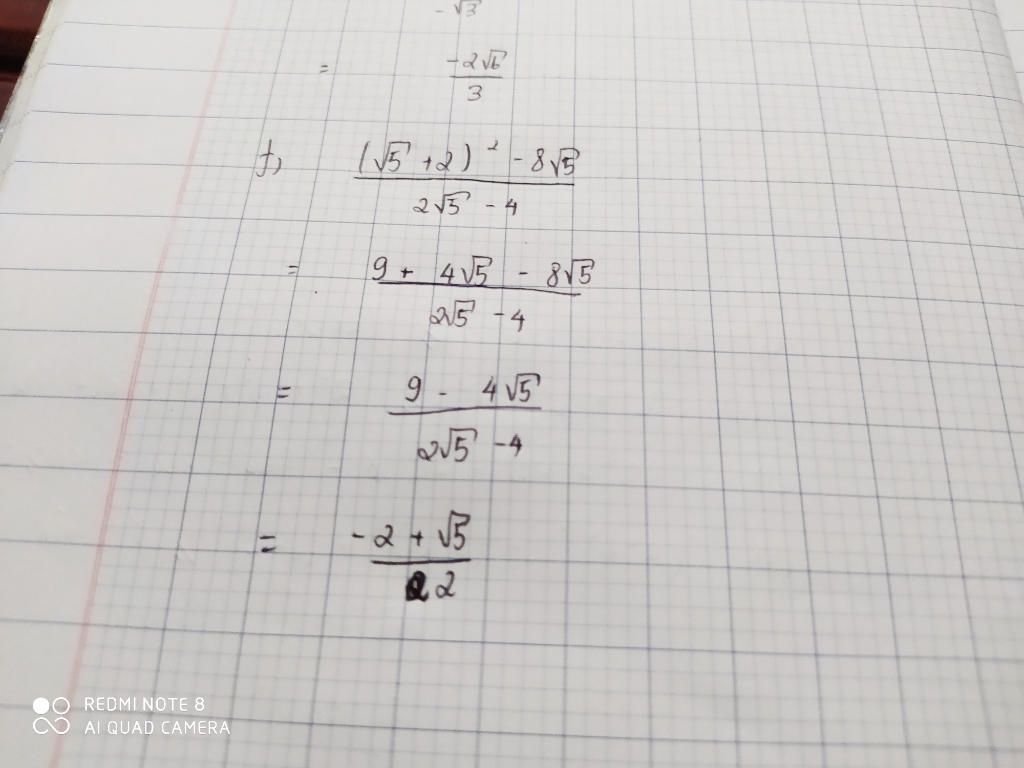 - √3
= -2√6
3
f, (√5 + 2)² - 8√5
2√5 - 4
= 9 + 4√5 - 8√5
2√5 - 4
= 9 - 4√5
2√5 - 4
= -2 + √5
2
REDMI NOTE 8
AI QUAD CAMERA